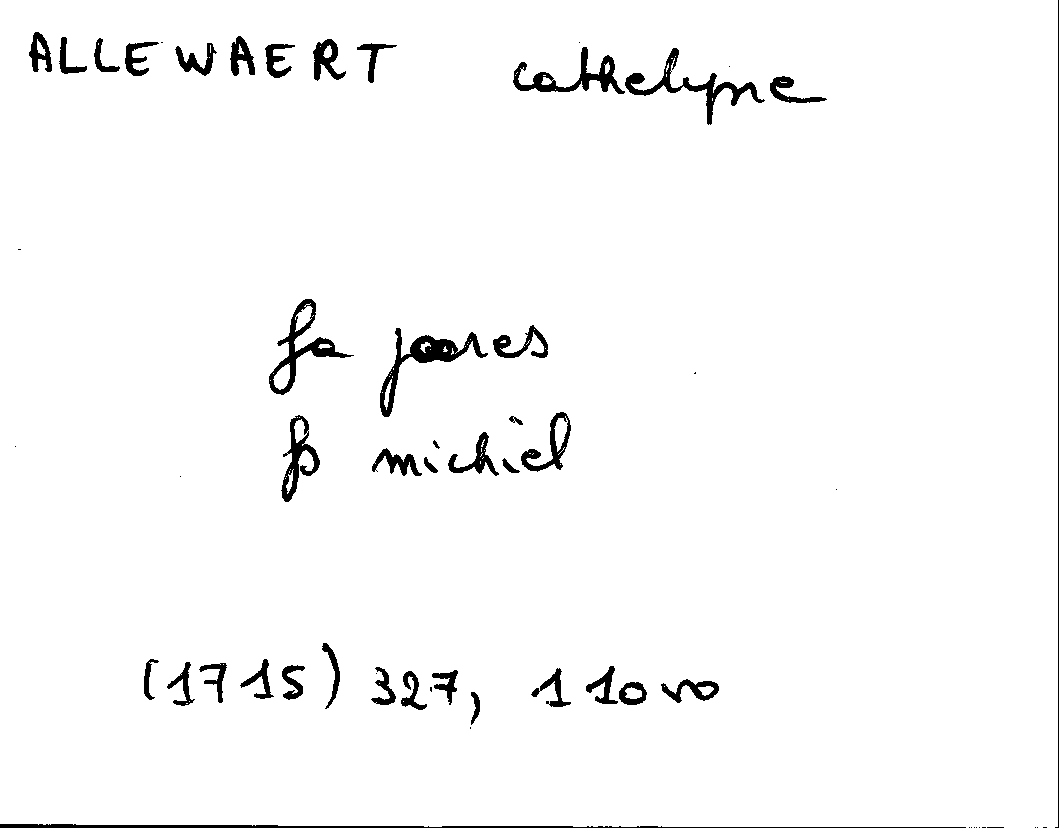 ALLEWAERT cathelyne
fa joores
fs michiel
(1715) 327, 110 vo